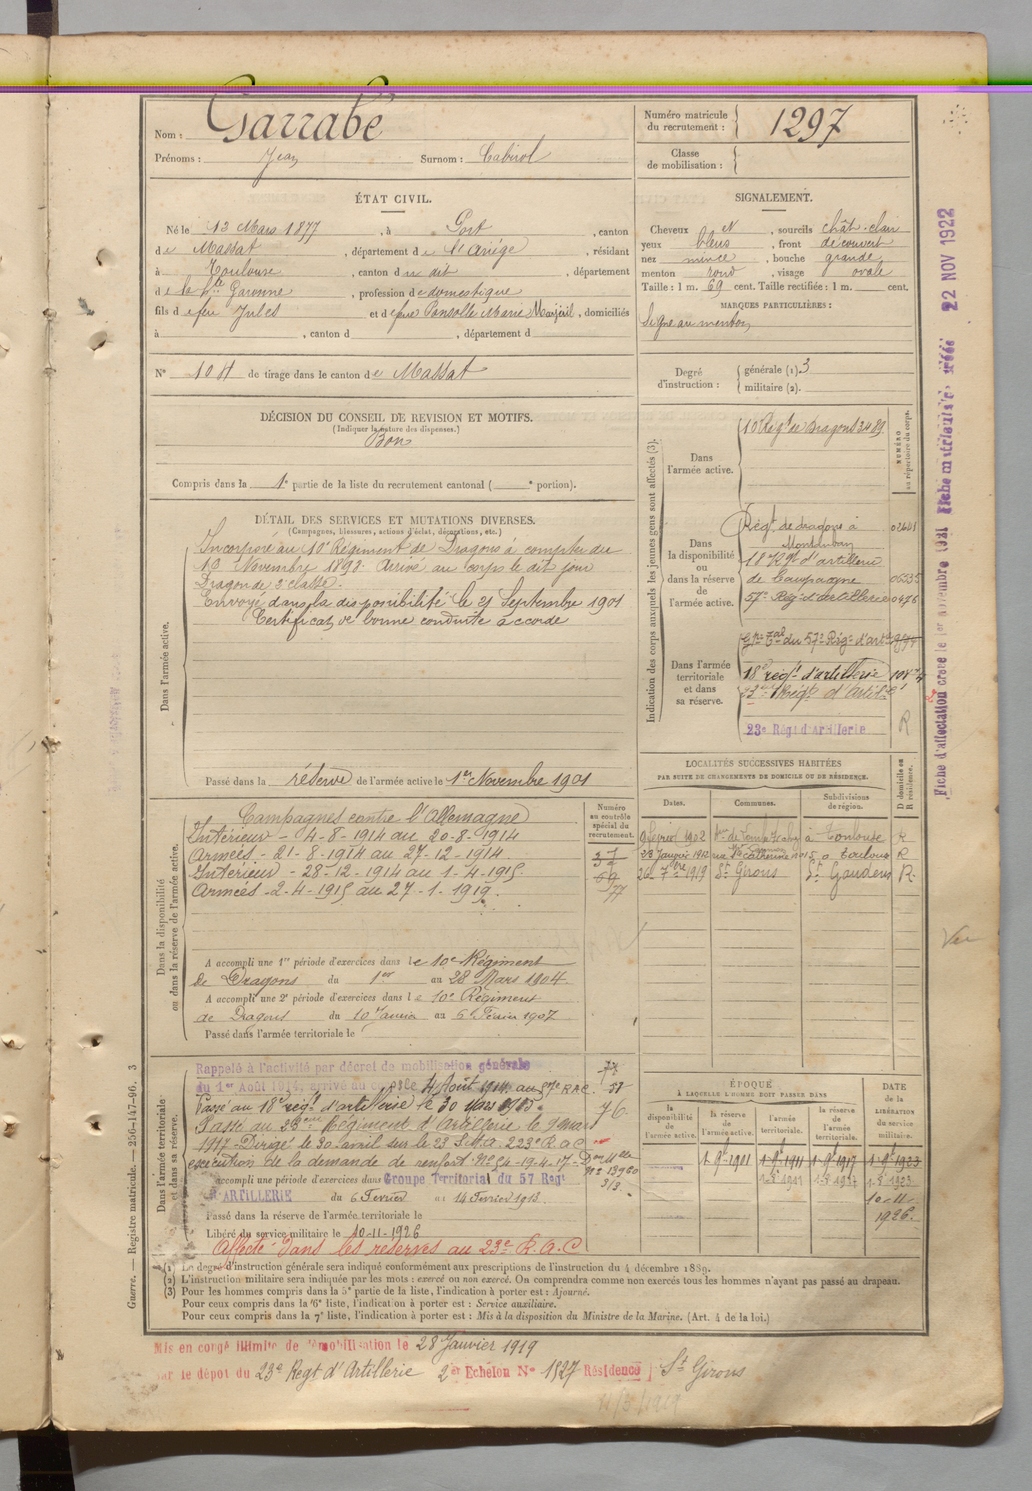 Nom : Garrabé
Prénoms : Jean Surnom : Cabirol
Numéro matricule du recrutement : 1297
Classe de mobilisation :
ÉTAT CIVIL.
Né le 13 Mars 1877, à Port, canton
de Massat, département de l'Ariège, résidant
à Toulouse, canton du dit, département
de la Hte Garonne, profession de domestique
fils de feu Jules et de feue Ponsolle Marie, domiciliés
à , canton d , département d
N° 104 de tirage dans le canton de Massat
SIGNALEMENT.
Cheveux et, sourcils chât-clair
yeux bleus, front découvert
nez mince, bouche grande
menton rond, visage ovale
Taille : 1 m. 69 cent. Taille rectifiée : 1 m. cent.
MARQUES PARTICULIÈRES :
Signe au menton
Degré d'instruction : générale (1) 3
militaire (2).
DÉCISION DU CONSEIL DE REVISION ET MOTIFS.
(Indiquer la nature des dispenses.)
Bon
Compris dans la 1e partie de la liste du recrutement cantonal ( e portion).
DÉTAIL DES SERVICES ET MUTATIONS DIVERSES.
(Campagnes, blessures, actions d'éclat, décorations, etc.)
Dans l'armée active.
Incorporé au 10e Régiment de Dragons à compter du
10 Novembre 1898. Arrivé au corps le dit jour
Dragon de 2e classe.
Envoyé dans la disponibilité le 21 Septembre 1901
Certificat de bonne conduite accordé
Passé dans la réserve de l'armée active le 1er Novembre 1901
Indication des corps auxquels les jeunes gens sont affectés (3).
NUMÉRO au répertoire du corps.
Dans l'armée active.
10 Régt de Dragons 3489
Dans la disponibilité ou dans la réserve de l'armée active.
Régt de dragons à Montauban
18e Régt d'artillerie de Campagne
57e Rég. d'artillerie 0476
Dans l'armée territoriale et dans sa réserve.
Gpe Tal du 57e Régt d'art
18e régt d'artillerie
23e Régt d'Artil
23e Régt d'Artillerie R
LOCALITÉS SUCCESSIVES HABITÉES
PAR SUITE DE CHANGEMENTS DE DOMICILE OU DE RÉSIDENCE.
Dates. Communes. Subdivisions de région. D domicile ou R résidence.
9 février 1902 à Toulouse R
23 Janvier 1912 rue Ste Catherine no 15 à Toulouse R
26 7bre 1919 St Girons St Gaudens R.
Dans la disponibilité ou dans la réserve de l'armée active.
Campagnes contre l'Allemagne
Intérieur - 4-8-1914 au 20-8-1914
Armées - 21-8-1914 au 27-12-1914.
Intérieur - 28-12-1914 au 1-4-1915.
Armées - 2-4-1915 au 27-1-1919.
Numéro au contrôle spécial du recrutement.
A accompli une 1re période d'exercices dans le 10e Régiment
de Dragons du 1er au 28 Mars 1904.
A accompli une 2e période d'exercices dans le 10e Régiment
de Dragons du 10 Janvier au 6 Février 1907
Passé dans l'armée territoriale le
Dans l'armée territoriale et dans sa réserve.
Rappelé à l'activité par décret de mobilisation générale
du 1er Août 1914, arrivé au corps le 4 Août 1914. au 57e RAC.
Passé au 18e régt d'artillerie le 30 mars 1915.
Passé au 23e Régiment d'Artillerie le 9 mars
1917 - Dirigé le 30 avril sur le 23 223e R a C
exécution de la demande de renfort No 54-19-4-17-
A accompli une période d'exercices dans Groupe Territorial du 57 Régt
d'ARTILLERIE du 6 Février au 14 Février 1913.
Passé dans la réserve de l'armée territoriale le
Libéré du service militaire le 10-11-1926
Affecté dans les réserves au 23e R.A.C
ÉPOQUE À LAQUELLE L'HOMME DOIT PASSER DANS
la disponibilité de l'armée active. la réserve de l'armée active. l'armée territoriale. la réserve de l'armée territoriale.
DATE de la LIBÉRATION du service militaire.
1-9-1901 1-9-1911 1-9-1917 1-9-1923
10-11-1926.
(1) Le degré d'instruction générale sera indiqué conformément aux prescriptions de l'instruction du 4 décembre 1889.
(2) L'instruction militaire sera indiquée par les mots : exercé ou non exercé. On comprendra comme non exercés tous les hommes n'ayant pas passé au drapeau.
(3) Pour les hommes compris dans la 5e partie de la liste, l'indication à porter est : Ajourné.
Pour ceux compris dans la 6e liste, l'indication à porter est : Service auxiliaire.
Pour ceux compris dans la 7e liste, l'indication à porter est : Mis à la disposition du Ministre de la Marine. (Art. 4 de la loi.)
Mis en congé illimité de démobilisation le 28 Janvier 1919
par le dépôt du 23e Régt d'Artillerie 2er Echelon No 1827 Résidence St Girons
Guerre. — Registre matricule. — 256-147-96. 3
Fiche d'affectation créée le 1er novembre 1921 Fiche matricule créée 22 NOV 1922